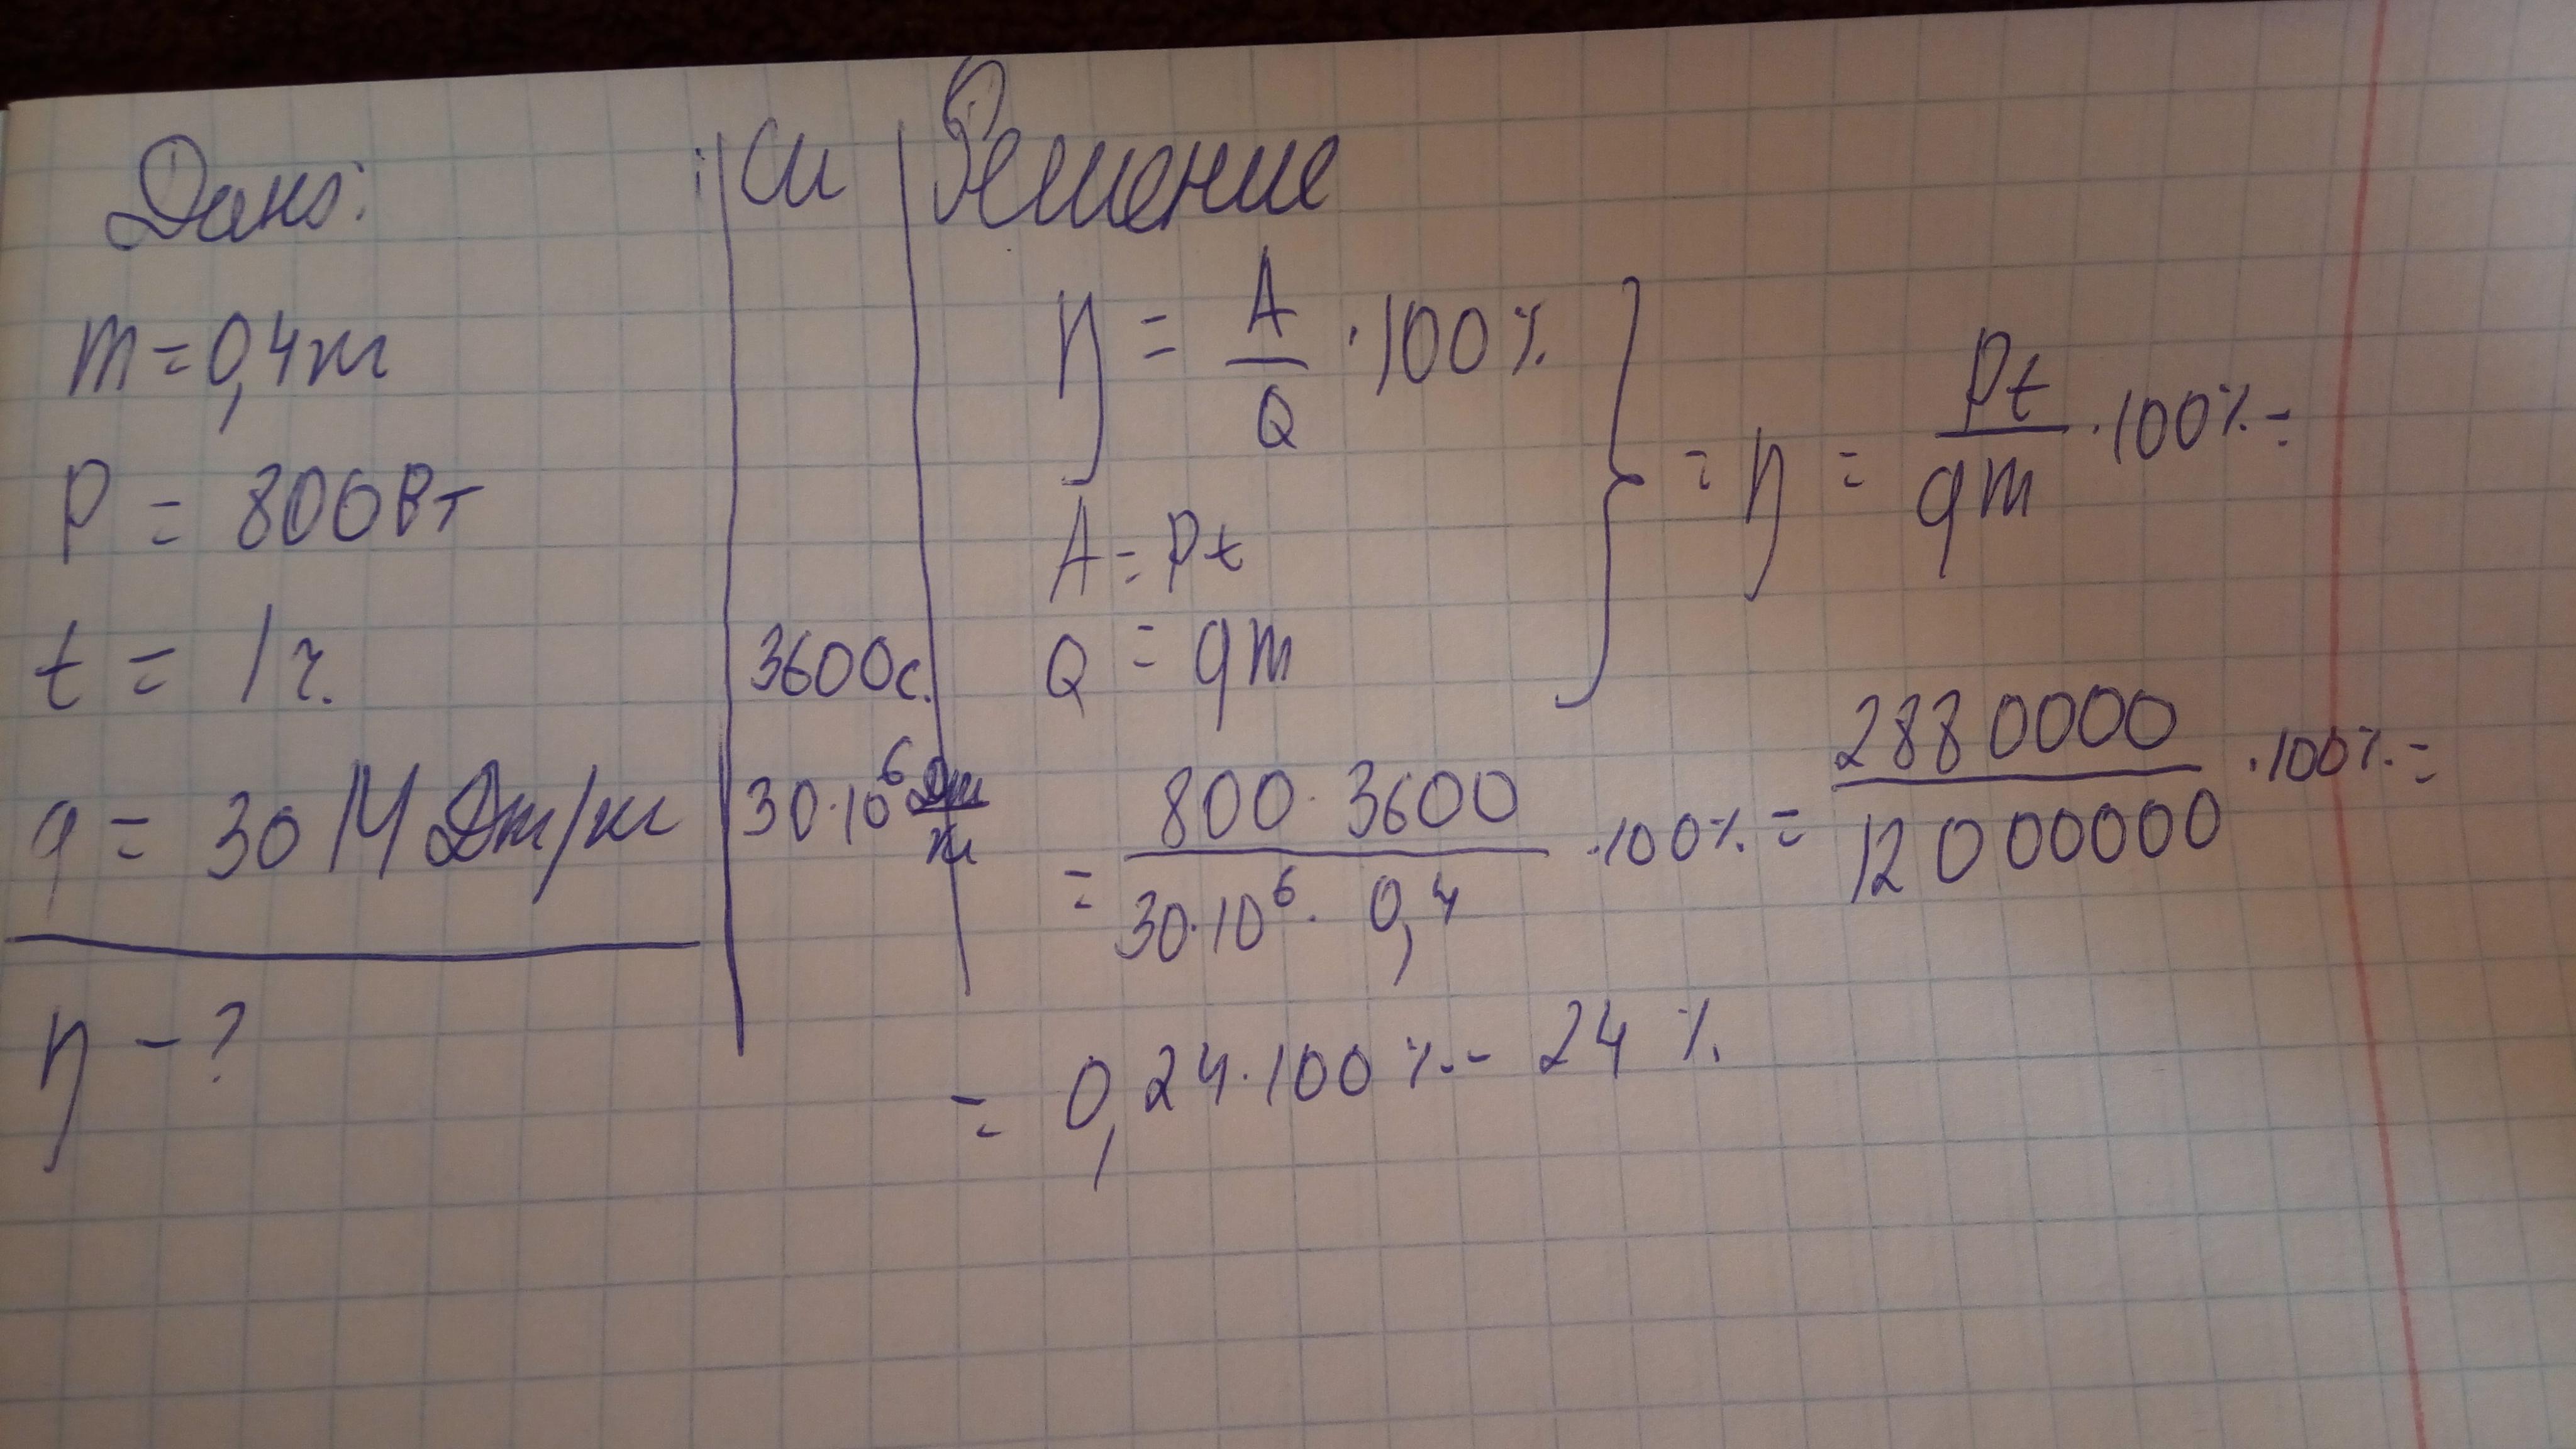 Дано:
m=0,4кг
P = 800Вт
t = 1ч.
q = 30 МДж/кг
η - ?
СИ
3600с.
30·10⁶ Дж/кг
Решение
η = A/Q ·100%
A = Pt
Q = qm
} = η = Pt/qm ·100% =
= 800·3600/30·10⁶·0,4 ·100% = 2880000/12000000 ·100% =
= 0,24·100% = 24%